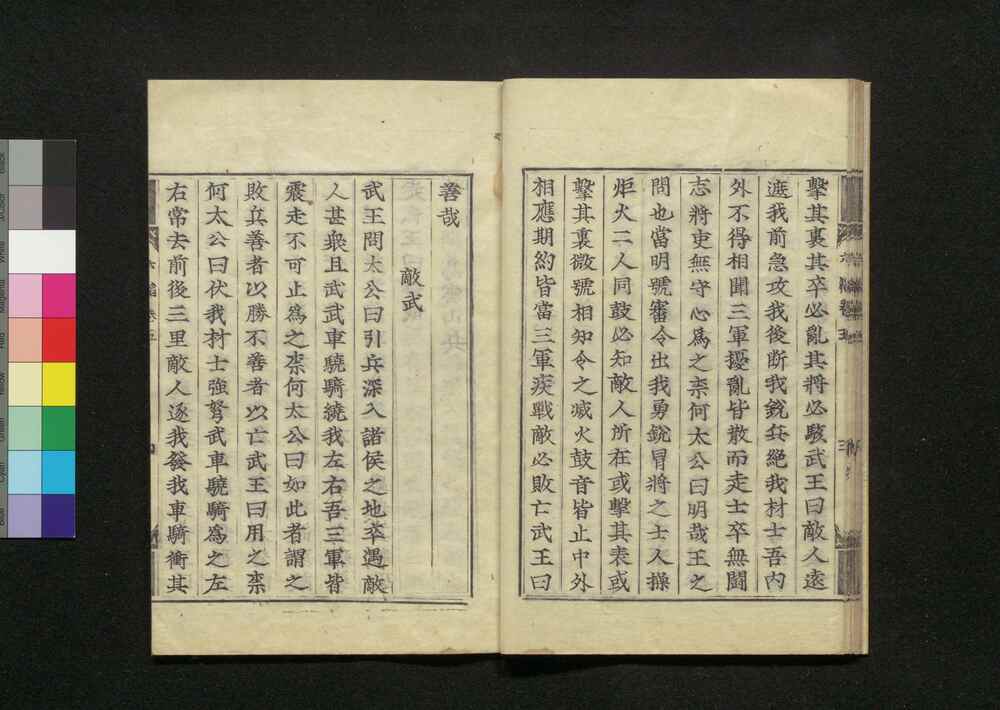 擊其裏其卒必亂其將必駭武王曰敵人遠
遮我前急攻我後断我銳兵絕我材士吾內
外不得相聞三軍擾亂皆散而走士卒無鬪
志將吏無守心爲之柰何太公曰明哉王之
問也當明號審令出我勇銳冒將之士人操
炬火二人同鼓必知敵人所在或擊其表或
擊其裏微號相知令之滅火鼓音皆止中外
相應期約皆當三軍疾戰敵必敗亡武王曰
善哉
敵武
武王問太公曰引兵深入諸侯之地卒遇敵
人甚衆且武武車驍騎繞我左右吾三軍皆
震走不可止爲之柰何太公曰如此者謂之
敗兵善者以勝不善者以亡武王曰用之柰
何太公曰伏我材士強弩武車驍騎爲之左
右常去前後三里敵人逐我發我車騎衝其